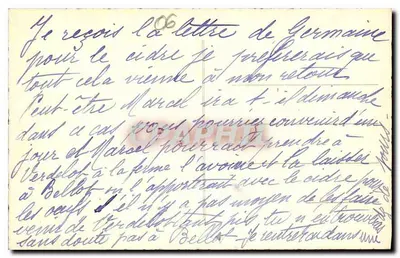 06
Je reçois la lettre de Germaine
pour le cidre je préfererais que
tout cela vienne à mon retour
Peut être Marcel ira t'il dimanche
dans ce cas vous pourriez convenir d'un
jour et Marcel pourrait prendre à
Verdelot à la ferme l'avoine et la laisser
à Bellot on l'apporterait avec le cidre pour
les oeufs s'il n'y a pas moyen de les faire
venir de Verdelot tant pis tu n'en trouveras
sans doute pas à Bellot je rentrerai dans une